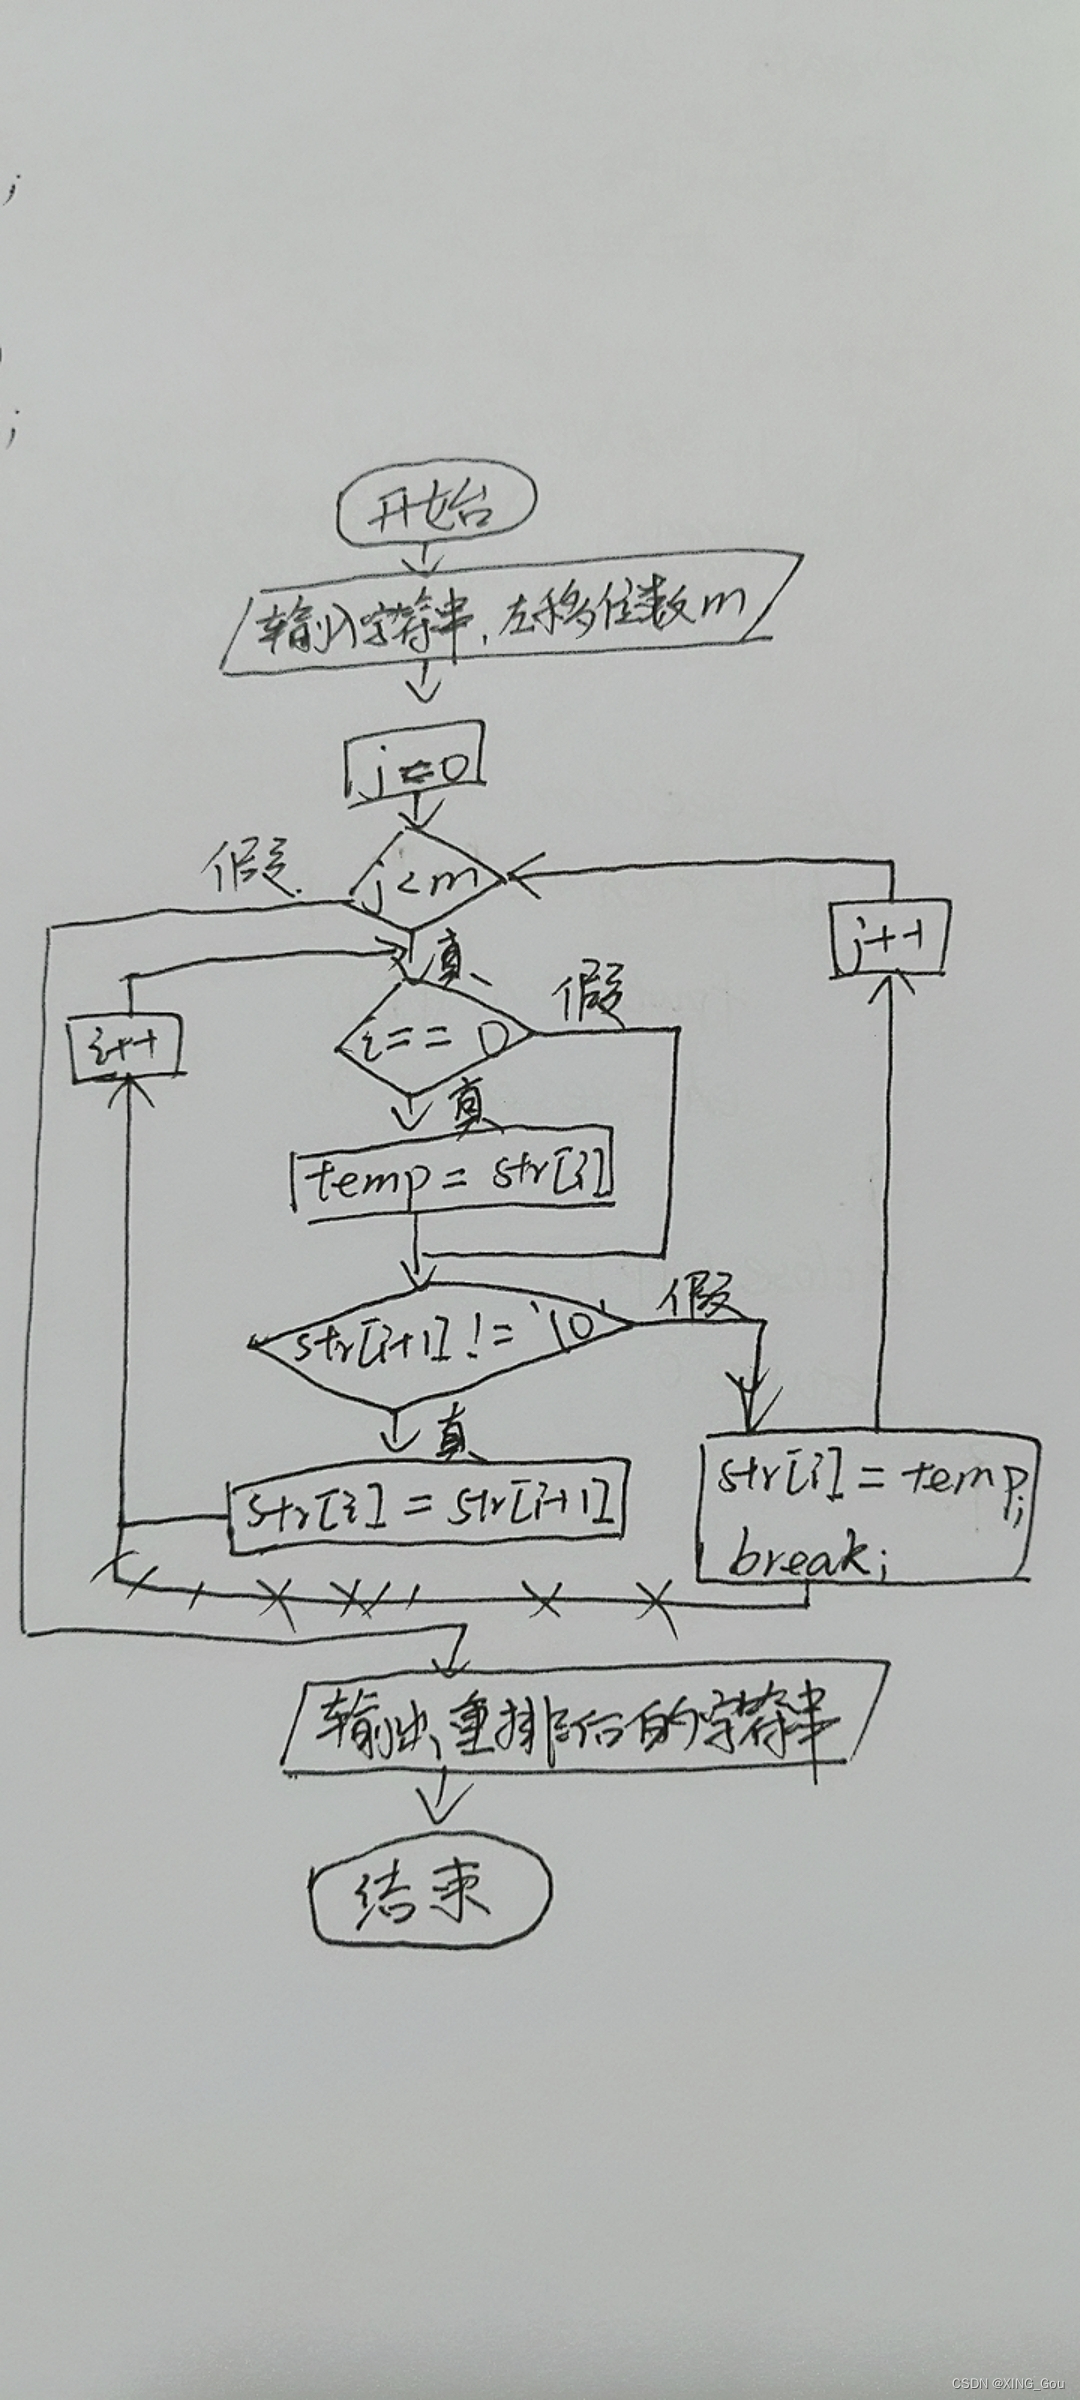 ;
;
开始
输入字符串,左移位数m
j=0
假
j<m
j++
真
假
i++
i==0
真
temp = str[i]
假
str[i+1] != '\0'
真
str[i] = temp;
str[i] = str[i+1]
break;
输出重排后的字符串
结束
CSDN @XING_Gou